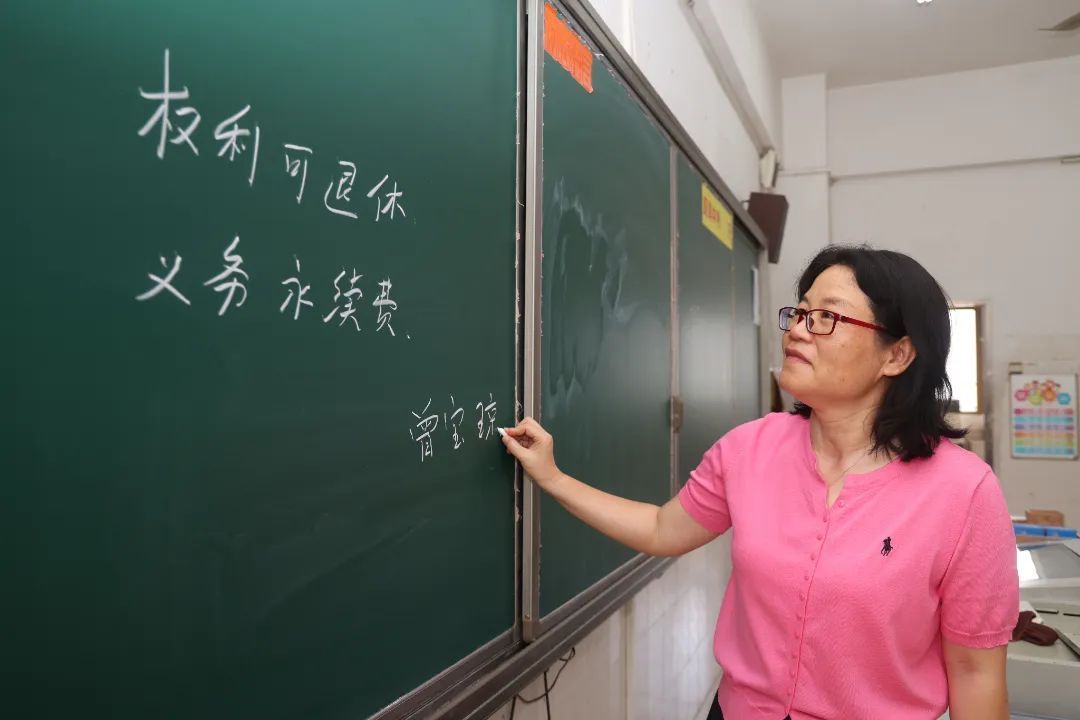 权利可退休
义务永续费.
曾宝琼